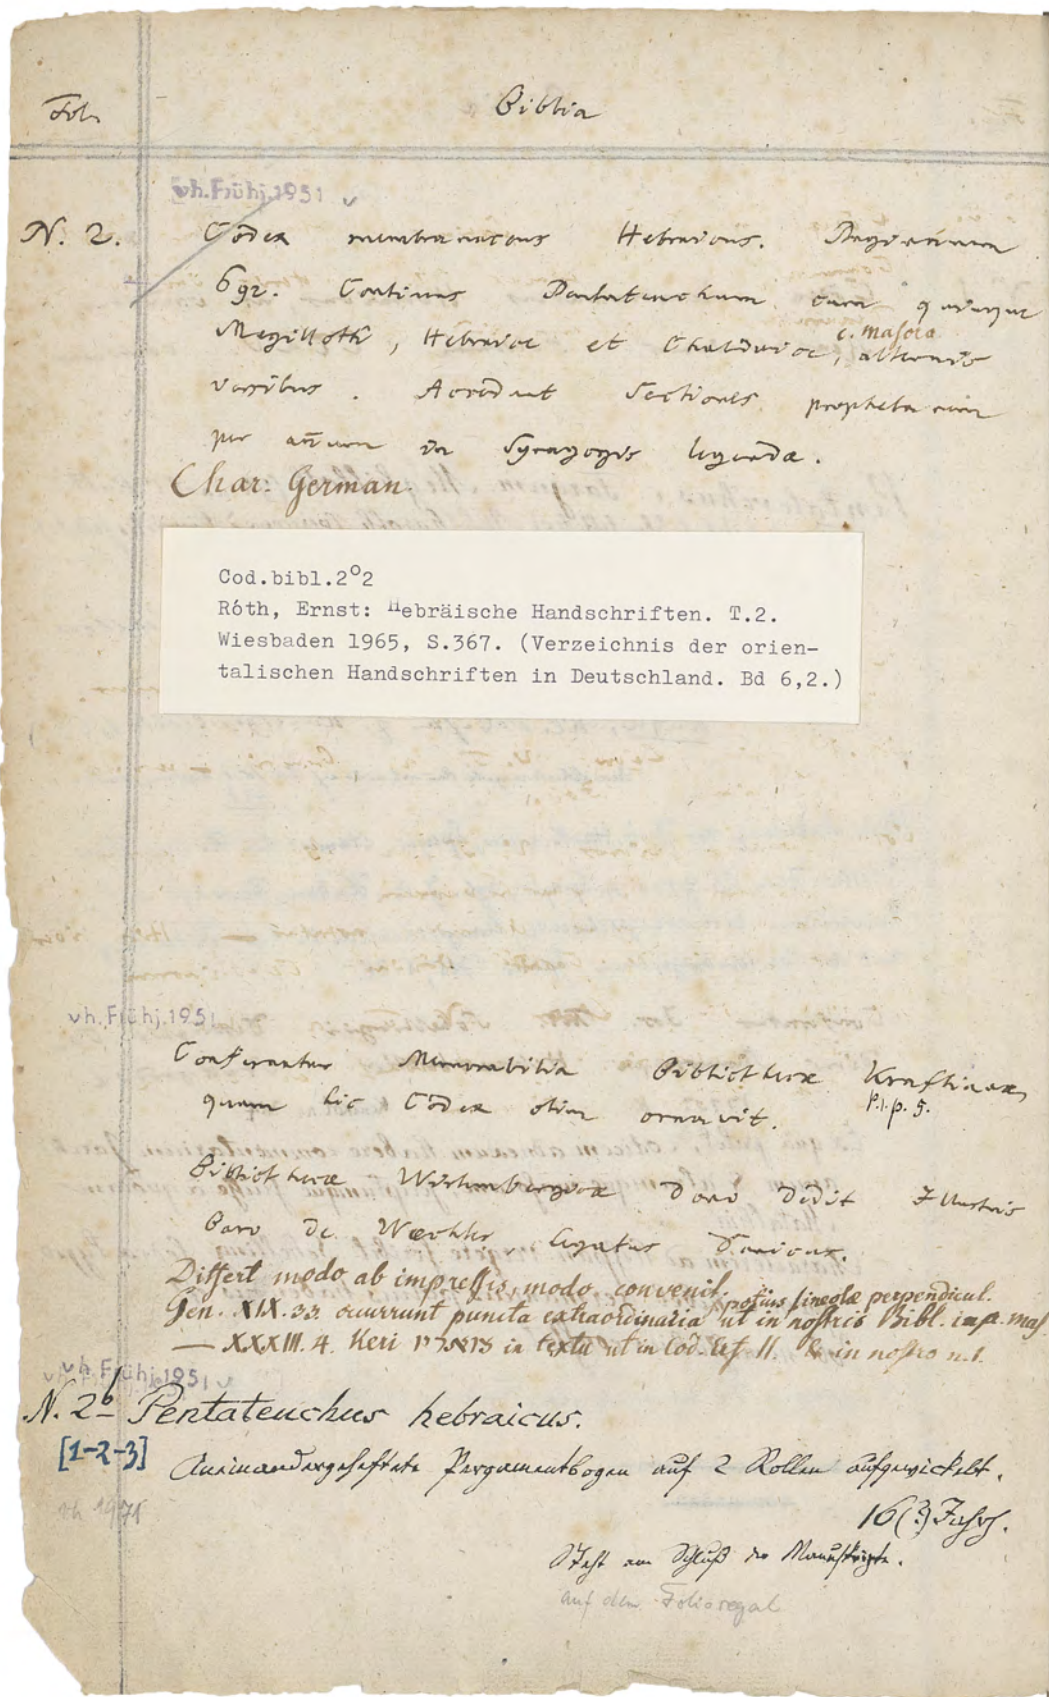 Fol. Biblia
vh. Frühj. 1951
N. 2. Codex membranaceus Hebraicus.
692. Continens Pentateuchum cum quinque
Megilloth, Hebraice et Chaldaice, c. masora alternis
versibus. Accedunt Sectiones prophetarum
per annum in Synagogis legendae.
Char: German.
Cod.bibl.2º2
Róth, Ernst: Hebräische Handschriften. T.2.
Wiesbaden 1965, S.367. (Verzeichnis der orien-
talischen Handschriften in Deutschland. Bd 6,2.)
vh. Frühj. 1951
Conferantur Memorabilia Bibliothecae Kraftianae,
quam hic Codex olim ornavit. P.I. p. 5.
Bibliothecae Wirtembergicae dono dedit Illustris
Baro de Waechter, legatus Danicus.
Differt modo ab impressis, modo convenit.
Gen. XIX. 33. occurrunt puncta extraordinaria potius lineolae perpendicul. ut in nostris Bibl. imp. mas.
— XXXIII. 4. Keri in textu ut in Cod. II. & in nostro n. 1.
vh. Frühj. 1951
N. 2b Pentateuchus hebraicus.
[1-2-3] Aneinandergeheftete Pergamentbogen auf 2 Rollen aufgewickelt.
vh 1971
16(?) Jahrh.
Steht am Schluß der Manuskripte.
auf dem Folioregal